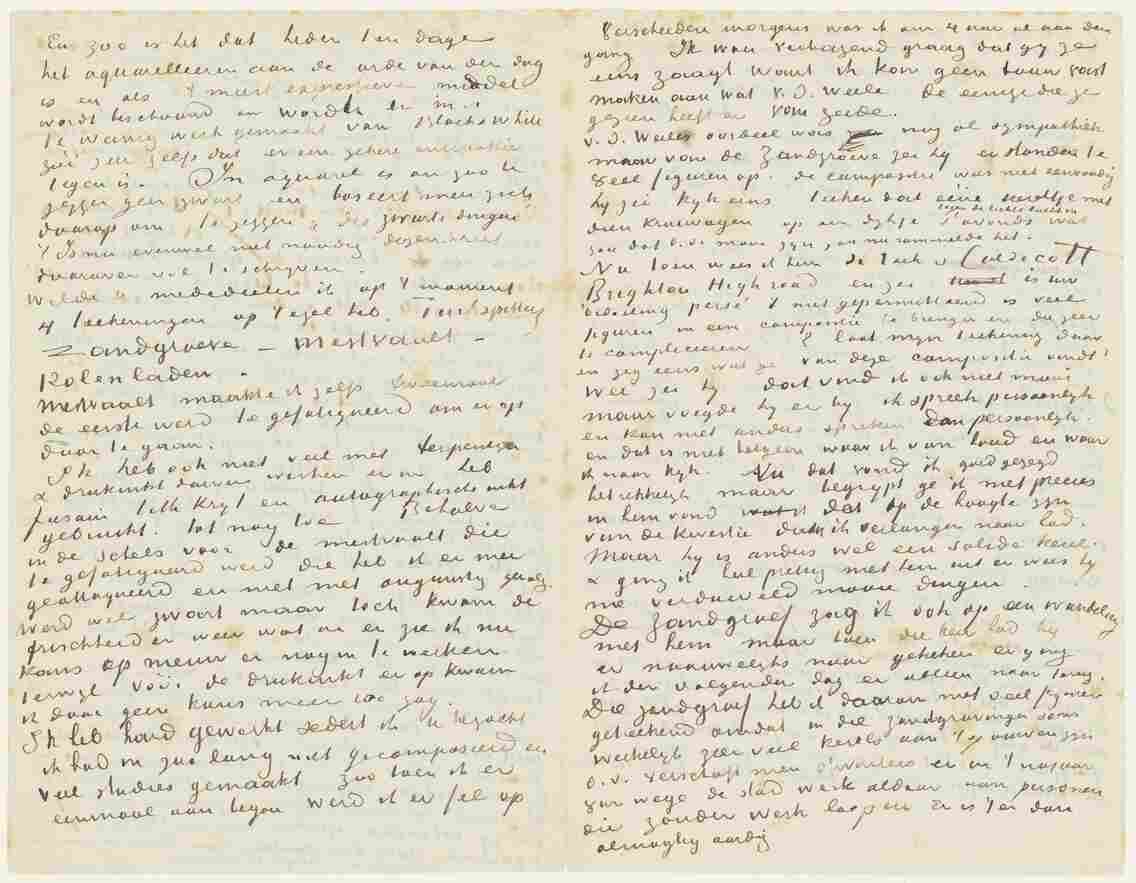 En zoo is het dat heden ten dage
het aquarelleeren aan de orde van den dag
is en als 't meest expressieve middel
wordt beschouwd en wordt er m.i.
te weinig werk gemaakt van Black & White
zoo zeer zelfs dat er een zekere antipathie
tegen is. In aquarel is om zoo te
zeggen geen zwart en baseert men zich
daarop om te zeggen "die zwarte dingen"
't Is nu evenwel niet noodig dezen brief
daarover vol te schrijven.
Wilde U mededeelen ik op 't moment
4 teekeningen op ezel heb. Turfspitters
Zandgroeve – mestvaalt –
Kolenladen –
Mestvaalt maakte ik zelfs tweemaal
de eerste werd te gefatigeerd om er op
door te gaan.
Ik heb ook niet veel met terpentijn
& drukinkt daarin werken en heb
fusain lith kryt en autographische inkt
gebruikt. tot nog toe Behalve
in de schets voor de mestvaalt die
te gefatigueerd werd die heb ik er mee
geattaqueerd en niet met ongunstig gevolg.
Werd wel zwart maar toch kwam de
frischheid er weer wat in en zie ik nu
kans op nieuw er nog in te werken
terwyl vóór de drukinkt er op kwam
ik daar geen kans meer toe zag.
Ik heb hard gewerkt sedert ik U bezocht
ik had in zoo lang niet gecomposeerd en
veel studies gemaakt zoo toen ik er
eenmaal aan begon werd ik er fel op
Verscheiden morgens was ik om 4 uur al aan den
gang. Ik wou verbazend graag dat gy ze
eens zaagt want ik kon geen touw vast
maken aan wat v.d. Weele de eenige die ze
gezien heeft er van zeide.
v.d. Weele's oordeel was nog al sympathiek
maar van de Zandgroeve zei hy er stonden te
veel figuren op. de compositie was niet eenvoudig
hy zei kyk eens teeken dat eéne kereltje met
dien kruiwagen op een dykje tegen de lichte lucht in 's avonds wat
zou dat o.a. mooi zyn, en nu rammelde het.
Nu toen wees ik hem de teek v. Caldecott
Brighton Highroad en zei is uw
bedoeling persé 't niet gepermitteerd is veel
figuren in een compositie te brengen en die zeer
te compliceeren & laat myn teekening daar
en zeg eens wat ge van deze compositie vindt?
Wel zei hy dat vind ik ook niet mooi
maar voegde hy er by ik spreek persoonlyk
en kan niet anders spreken dan persoonlyk.
en dat is niet hetgeen waar ik van houd en waar
ik naar kyk. Nu dat vond ik goed gezegd
betrekkelyk maar begrypt ge ik niet precies
in hem vond dat op de hoogte zyn
van de kwestie dat ik verlangen naar had.
Maar hy is anders wel een solide kerel.
& ging ik heel prettig met hem uit en wees hy
me verduiveld mooie dingen
De Zandgroef zag ik ook op een wandeling
met hem maar toen die keer had hy
er nauwelyks naar gekeken en ging
ik den volgenden dag er alleen naar terug.
Die zandgroef heb ik daarom met veel figuren
geteekend omdat in die zandgravingen soms
werkelyk zeer veel kerels aan 't zwoegen zyn
o.a. verschaft men 's winters en in 't najaar
van wege de stad werk aldaar aan personen
die zonder werk loopen. Er is 't er dan
almagtig aardig